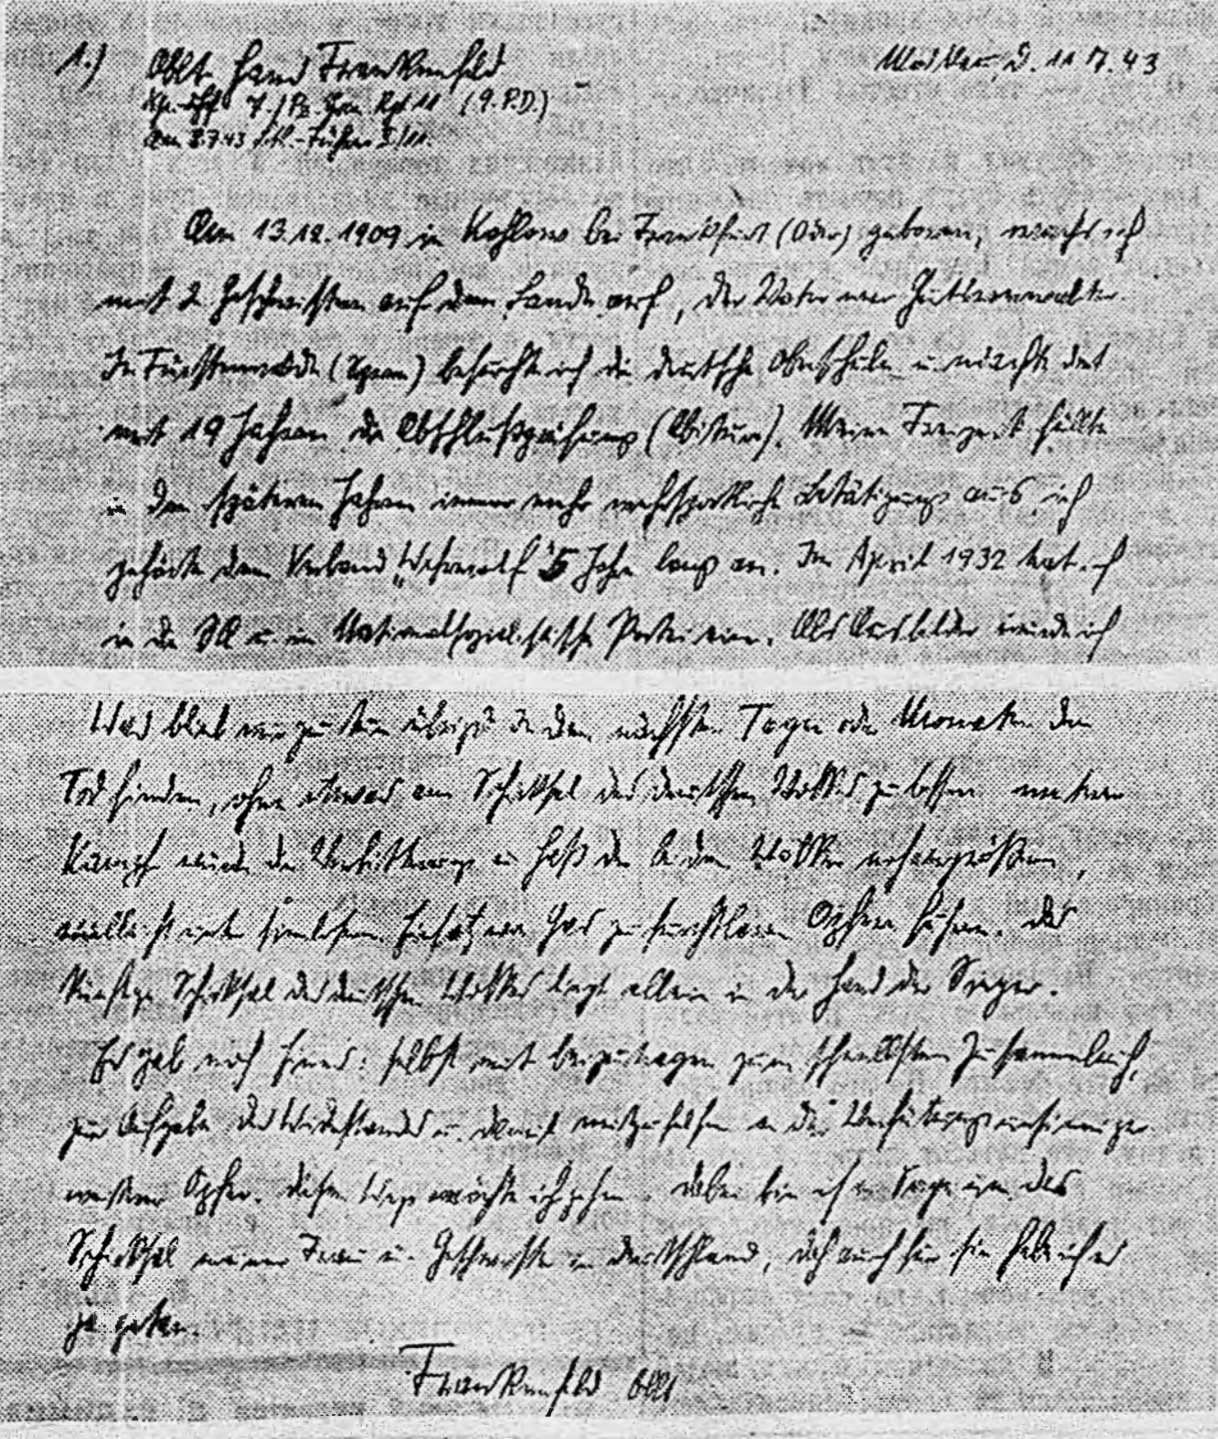 1.) Oblt. Hans Frankenfeld Moskau, d. 11.7.43
Kp.-Chef 7./Pz. Gren. Rgt. 11 (9. P.D.)
Am 8.7.43 stl.-Führer II/11.
Am 13.12.1909 in Kohlow bei Frankfurt (Oder) geboren, wuchs ich
mit 2 Geschwistern auf dem Lande auf, der Vater war Gutsverwalter.
In Fürstenwalde (Spree) besuchte ich die deutsche Oberschule u. machte dort
mit 19 Jahren die Abschlußprüfung (Abitur). Meine Freizeit füllte
in den späteren Jahren immer mehr wehrsportliche Betätigung aus, ich
gehörte dem Verband „Wehrwolf" 5 Jahre lang an. Im April 1932 trat ich
in die SA u. in Nationalsozialistische Partei ein. Als Ausbilder wurde ich
Was blieb mir zu tun übrig? In den nächsten Tagen oder Monaten den
Tod finden, ohne etwas am Schicksal des deutschen Volkes zu bessern.
Kampf würde die Verbitterung u. Haß der beiden Völker
vielleicht unter sinnlosem Einsatz von Gas zu furchtbaren Opfern führen. Das
künftige Schicksal des deutschen Volkes liegt allein in der Hand der Sieger.
Es gab noch eines: selbst mit beizutragen zum schnellsten Zusammenbruch,
zur Aufgabe des Widerstandes u. damit mitzuhelfen an der Verhütung unsinniger
weiterer Opfer. Diesen Weg möchte ich gehen. Dabei bin ich in Sorge um das
Schicksal meiner Frau u. Geschwister in Deutschland, doch auch für sie habe ich es
ja getan.
Frankenfeld Oblt